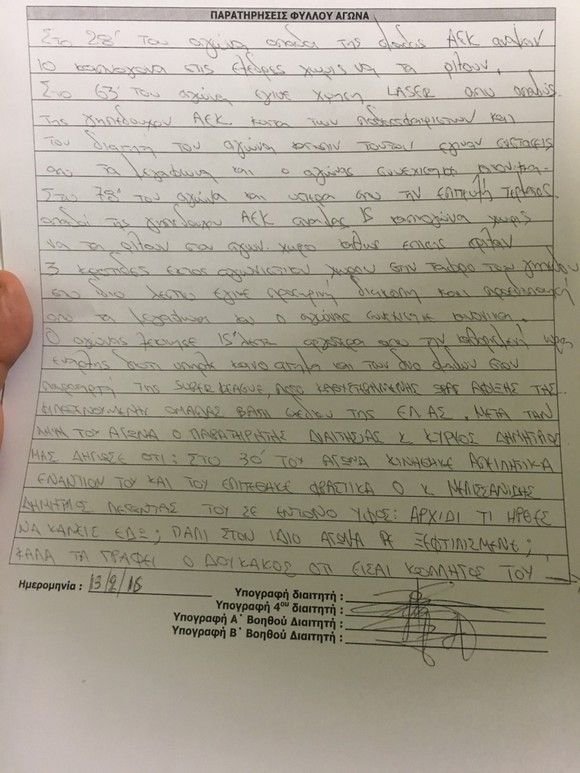 ΠΑΡΑΤΗΡΗΣΕΙΣ ΦΥΛΛΟΥ ΑΓΩΝΑ
Στο 28' του αγώνα οπαδοί της ομάδας ΑΕΚ άναψαν
10 καπνογόνα στις εξέδρες χωρίς να τα ρίξουν.
Στο 63' του αγώνα έγινε χρήση LASER από οπαδούς
της γηπεδούχου ΑΕΚ κατά των ποδοσφαιριστών και
του διαιτητή του αγώνα κατόπιν τούτου έγιναν συστάσεις
από τα μεγάφωνα και ο αγώνας συνεχίστηκε κανονικά.
Στο 78' του αγώνα και ύστερα από την επίτευξη τέρματος
οπαδοί της γηπεδούχου ΑΕΚ άναψαν 15 καπνογόνα χωρίς
να τα ρίξουν στον αγων. χώρο καθώς επίσης έριξαν
3 κροτίδες εκτός αγωνιστικού χώρου στην τάφρο του γηπέδου
στο ίδιο λεπτό έγινε προσωρινή διακοπή και προειδοποίηση
από τα μεγάφωνα και ο αγώνας συνεχίστηκε κανονικά.
Ο αγώνας ξεκίνησε 15 λεπτά αργότερα από την καθορισμένη ώρα
έναρξης διότι υπήρξε κοινό αίτημα και των δύο ομάδων στον
παρατηρητή της SUPER LEAGUE, λόγω ΚΑΘΥΣΤΕΡΗΜΕΝΗΣ ΑΦΙΞΗΣ ΤΗΣ
ΦΙΛΟΞΕΝΟΥΜΕΝΗΣ ΟΜΑΔΑΣ ΒΑΣΗ σχεδίου της ΕΛ.ΑΣ. ΜΕΤΑ ΤΗΝ
ΛΗΞΗ ΤΟΥ ΑΓΩΝΑ Ο ΠΑΡΑΤΗΡΗΤΗΣ ΔΙΑΙΤΗΣΙΑΣ Κ. ΚΥΡΚΟΣ ΔΗΜΗΤΡΙΟΣ
ΜΑΣ ΔΗΛΩΣΕ ΟΤΙ: ΣΤΟ 30' ΤΟΥ ΑΓΩΝΑ ΚΙΝΗΘΗΚΕ ΑΠΕΙΛΗΤΙΚΑ
ΕΝΑΝΤΙΟΝ ΤΟΥ ΚΑΙ ΤΟΥ ΕΠΙΤΕΘΗΚΕ ΦΡΑΣΤΙΚΑ Ο Κ. ΜΕΛΙΣΣΑΝΙΔΗΣ
ΔΗΜΗΤΡΙΟΣ ΛΕΓΟΝΤΑΣ ΤΟΥ ΣΕ ΕΝΤΟΝΟ ΥΦΟΣ: ΑΡΧΙΔΙ ΤΙ ΗΡΘΕΣ
ΝΑ ΚΑΝΕΙΣ ΕΔΩ; ΠΑΛΙ ΣΤΟΝ ΙΔΙΟ ΑΓΩΝΑ ΡΕ ΞΕΦΤΙΛΙΣΜΕΝΕ;
ΚΑΛΑ ΤΑ ΓΡΑΦΕΙ Ο ΔΟΥΚΑΚΟΣ ΟΤΙ ΕΙΣΑΙ ΚΟΛΛΗΤΟΣ ΤΟΥ
Ημερομηνία : 13/2/16
Υπογραφή διαιτητή :
Υπογραφή 4ου διαιτητή :
Υπογραφή Α΄ Βοηθού Διαιτητή :
Υπογραφή Β΄ Βοηθού Διαιτητή :